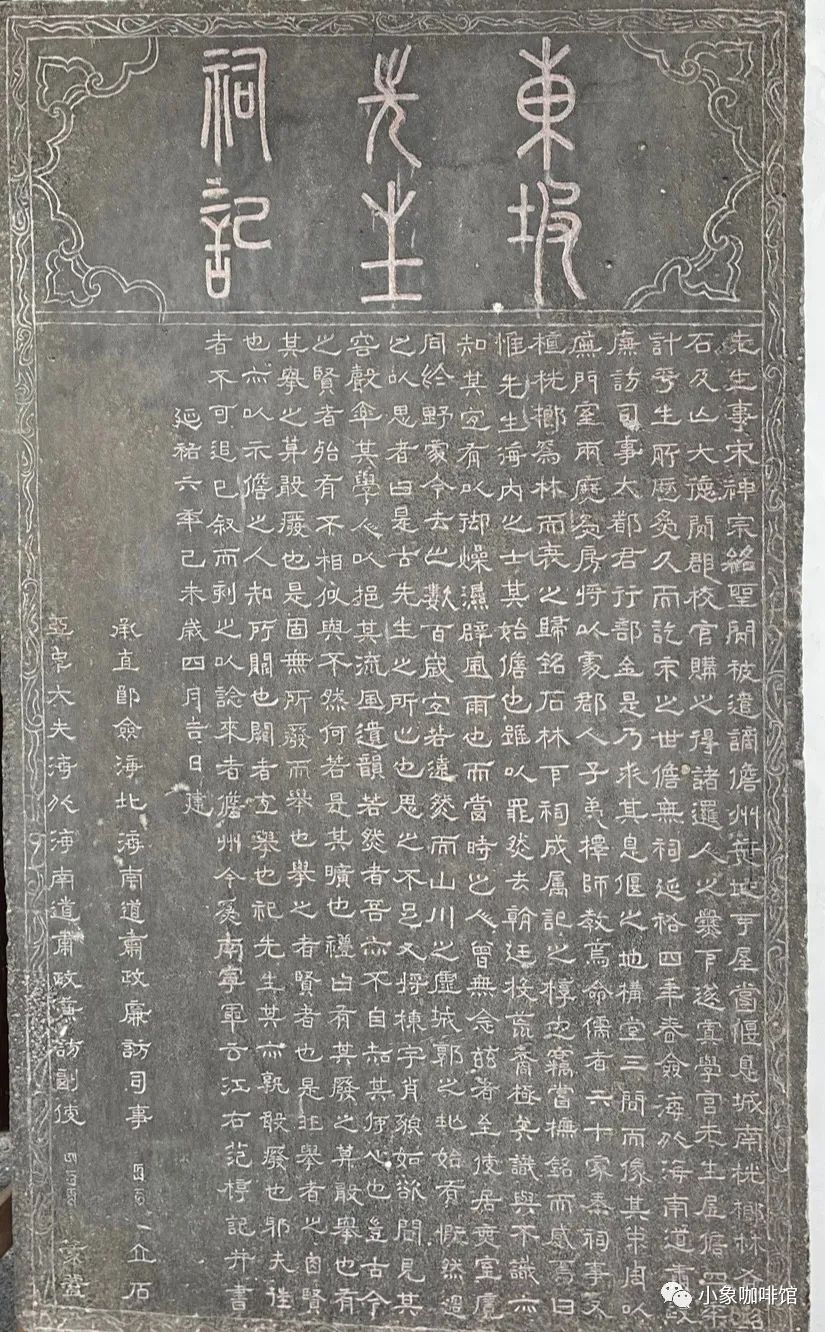 東坡
先生
祠記
先生事宋神宗紹聖閒被遣謫儋州無地亨屋嘗偃息城南桄榔林又銘
石及亾大德閒郡校官購之得諸邏人之爨下遂寘學官先生居儋四年
計平生所歷爲久而訖宋之世儋無祠延祐四年春僉海北海南道肅政
廉訪司事大都君行部至是乃求其息偃之地構堂三間而像其中周以
廡門室兩庭爲房將以處郡人子弟擇師教焉命儒者六十家奉祠事又
植桄榔爲林而表之歸銘石林下祠成属記之梈也竊嘗撫銘而感焉曰
惟先生海内之士其始儋也雖以罪然去朝廷投荒裔極矣識與不識亦
知其宜有以御燥濕辟風雨也而當時之人曾無念兹者至使居無室廬
同於野處今去之數百歲宜若遠然而山川之虛城郭之地始有慨然過
之以思者曰是古先生之所止也思之不足又將棟宇肖貌如欲聞見其
容聲其學心以挹其流風遺韻若然者吾亦不自知其何心也豈古今
之賢者殆有不相似與不然何若是其曠也禮曰有其廢之莫敢舉也有
其舉之莫敢廢也是固無所廢而舉也舉之者賢者也是在舉者之自賢
也亦以示儋之人知所闕也闕者宜舉也祀先生其亦孰敢廢也耶夫徃
者不可追已叙而刻之以諗來者儋州今爲南寧軍云江右范梈記并書
延祐六年己未歲四月吉日建
承直郎僉海北海南道肅政廉訪司事 立石
亞中大夫海北海南道肅政廉訪副使 篆蓋
小象咖啡馆